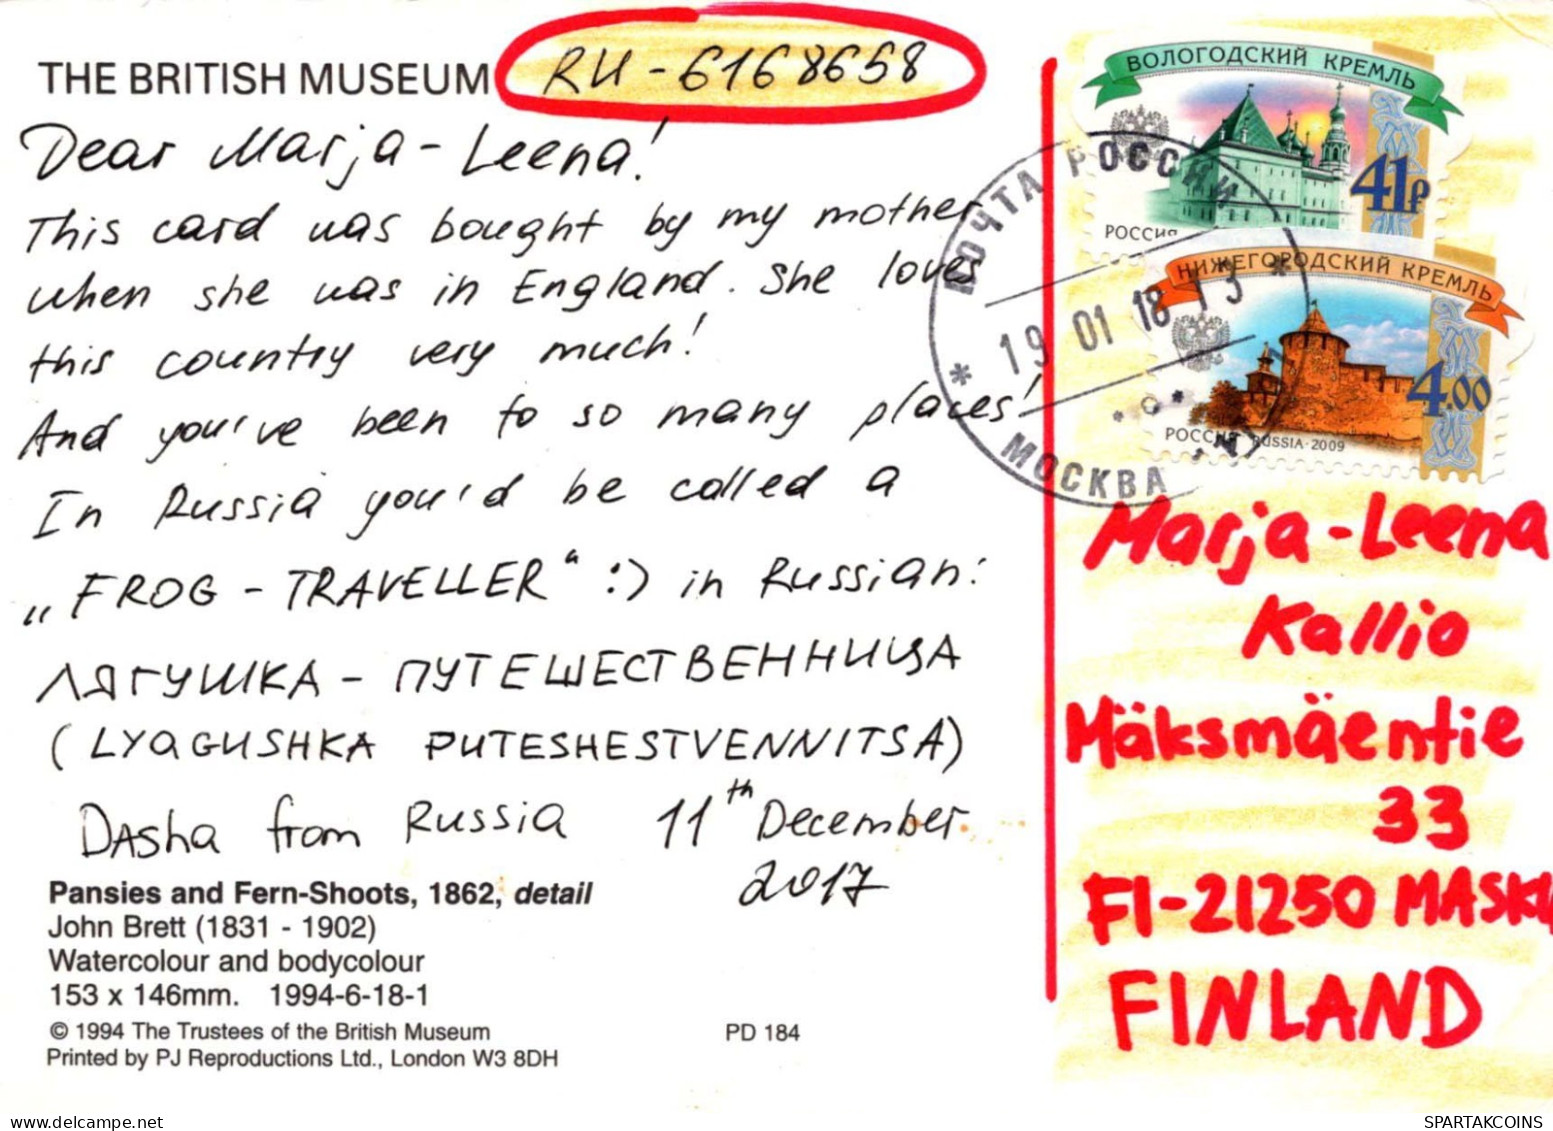 THE BRITISH MUSEUM
RU-6168658
Dear Marja-Leena!
This card was bought by my mother
when she was in England. She loves
this country very much!
And you've been to so many places!
In Russia you'd be called a
„FROG-TRAVELLER“ :) in Russian:
ЛЯГУШКА - ПУТЕШЕСТВЕННИЦА
(LYAGUSHKA PUTESHESTVENNITSA)
DASha from Russia 11th December
2017
Pansies and Fern-Shoots, 1862, detail
John Brett (1831 - 1902)
Watercolour and bodycolour
153 x 146mm. 1994-6-18-1
© 1994 The Trustees of the British Museum
PD 184
Printed by PJ Reproductions Ltd., London W3 8DH
ВОЛОГОДСКИЙ КРЕМЛЬ
41р
РОССИЯ
НИЖЕГОРОДСКИЙ КРЕМЛЬ
4.00
РОССИЯ RUSSIA·2009
ПОЧТА РОССИИ
* 19 01 18 13 *
МОСКВА
Marja-Leena
Kallio
Mäksmäentie
33
FI-21250 MASKU
FINLAND
akpool.de
SPARTAKCOINS